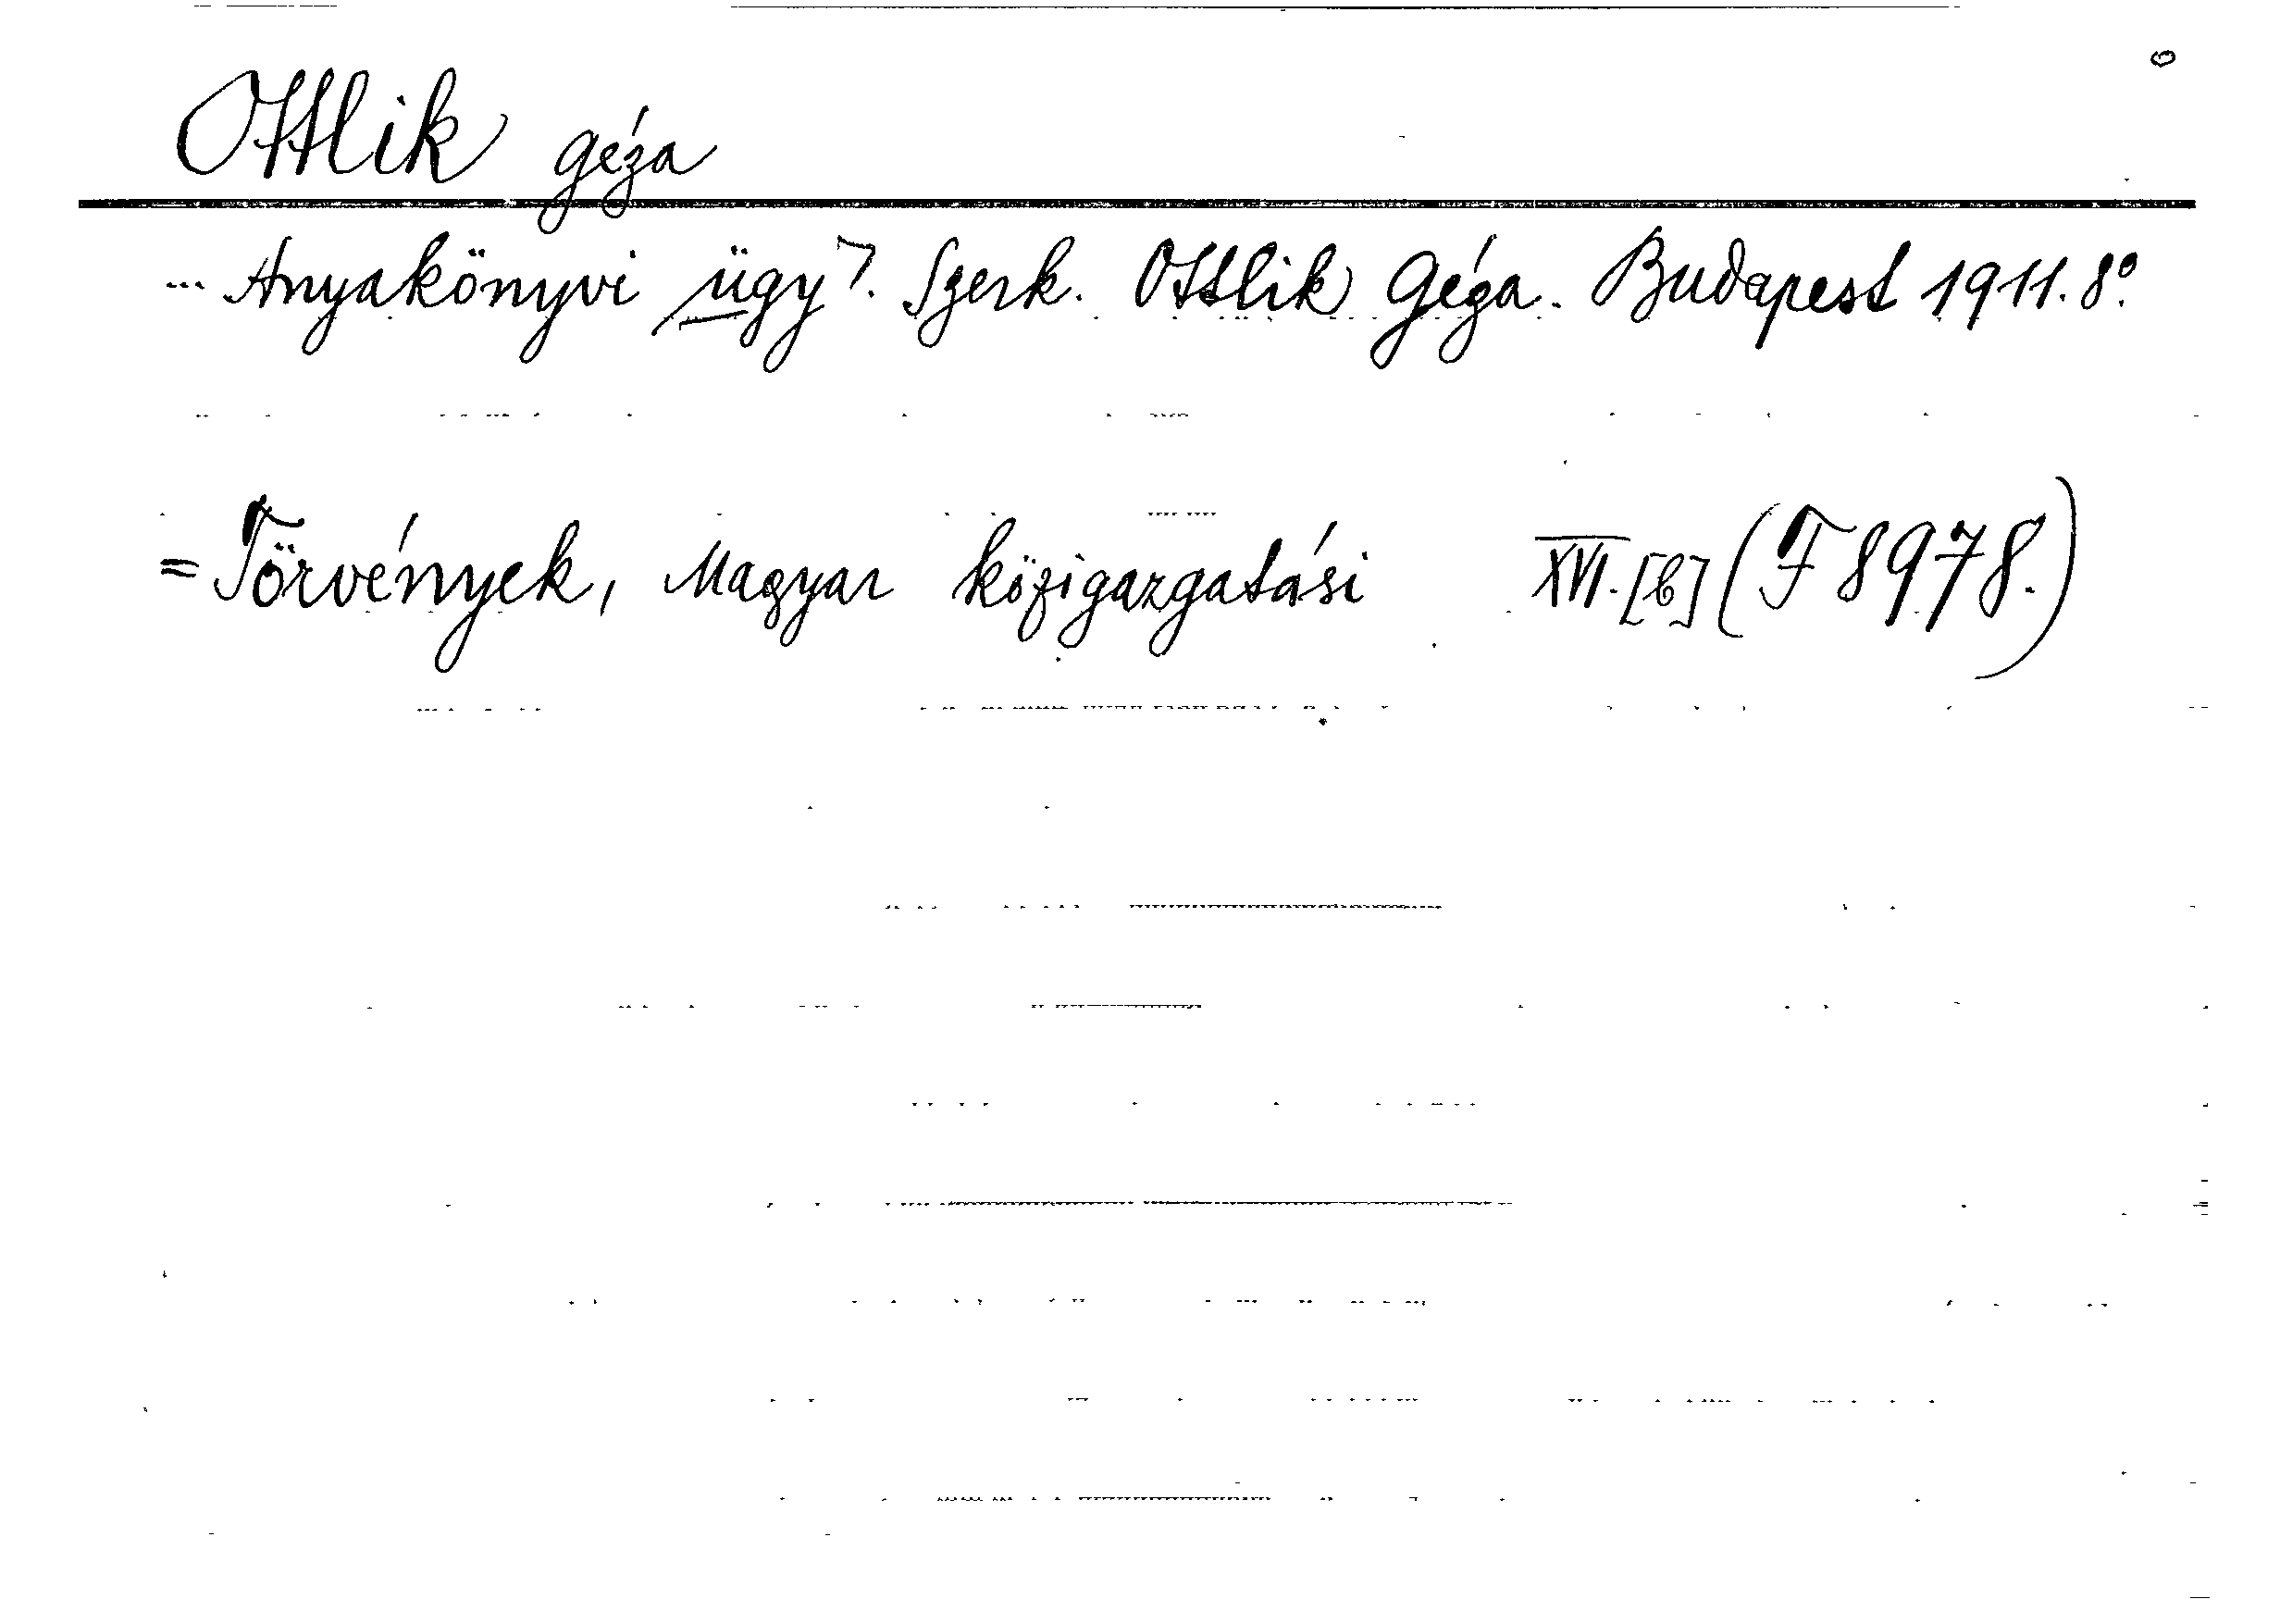 Ottlik géza
... Anyakönyvi ügy⁊. Szerk. Ottlik Géza. Budapest 1911. 8°.
= Törvények, Magyar közigazgatási XVI. [b] (F 8978.)